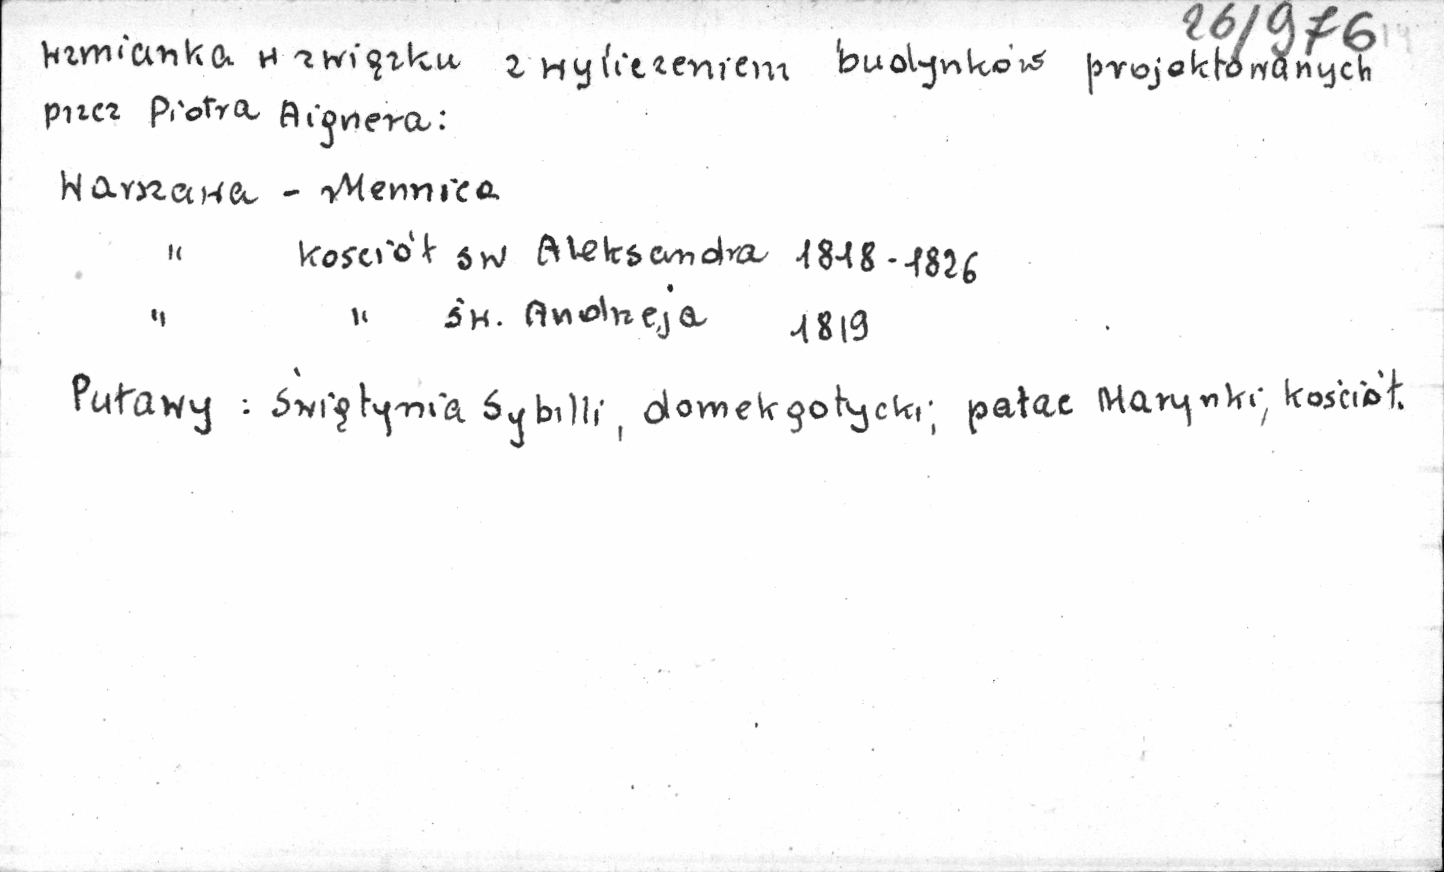 26/976
wzmianka w związku z wyliczeniem budynków projektowanych
przez Piotra Aignera:
Warszawa - Mennica
" kościół sw Aleksandra 1818-1826
" " św. Andrzeja 1819
Puławy : świątynia Sybilli, domek gotycki; pałac Marynki, kościół.